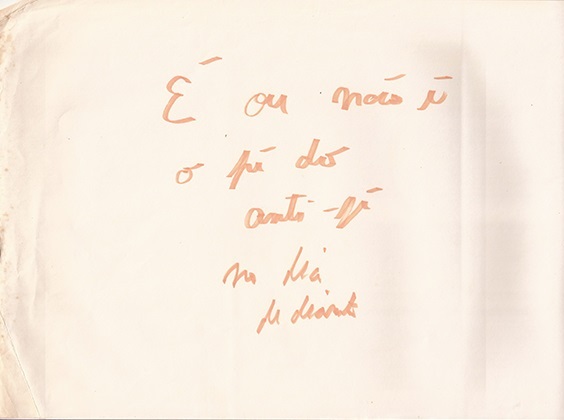 É ou não é
o pé do
anti-pé
no dia
de diante